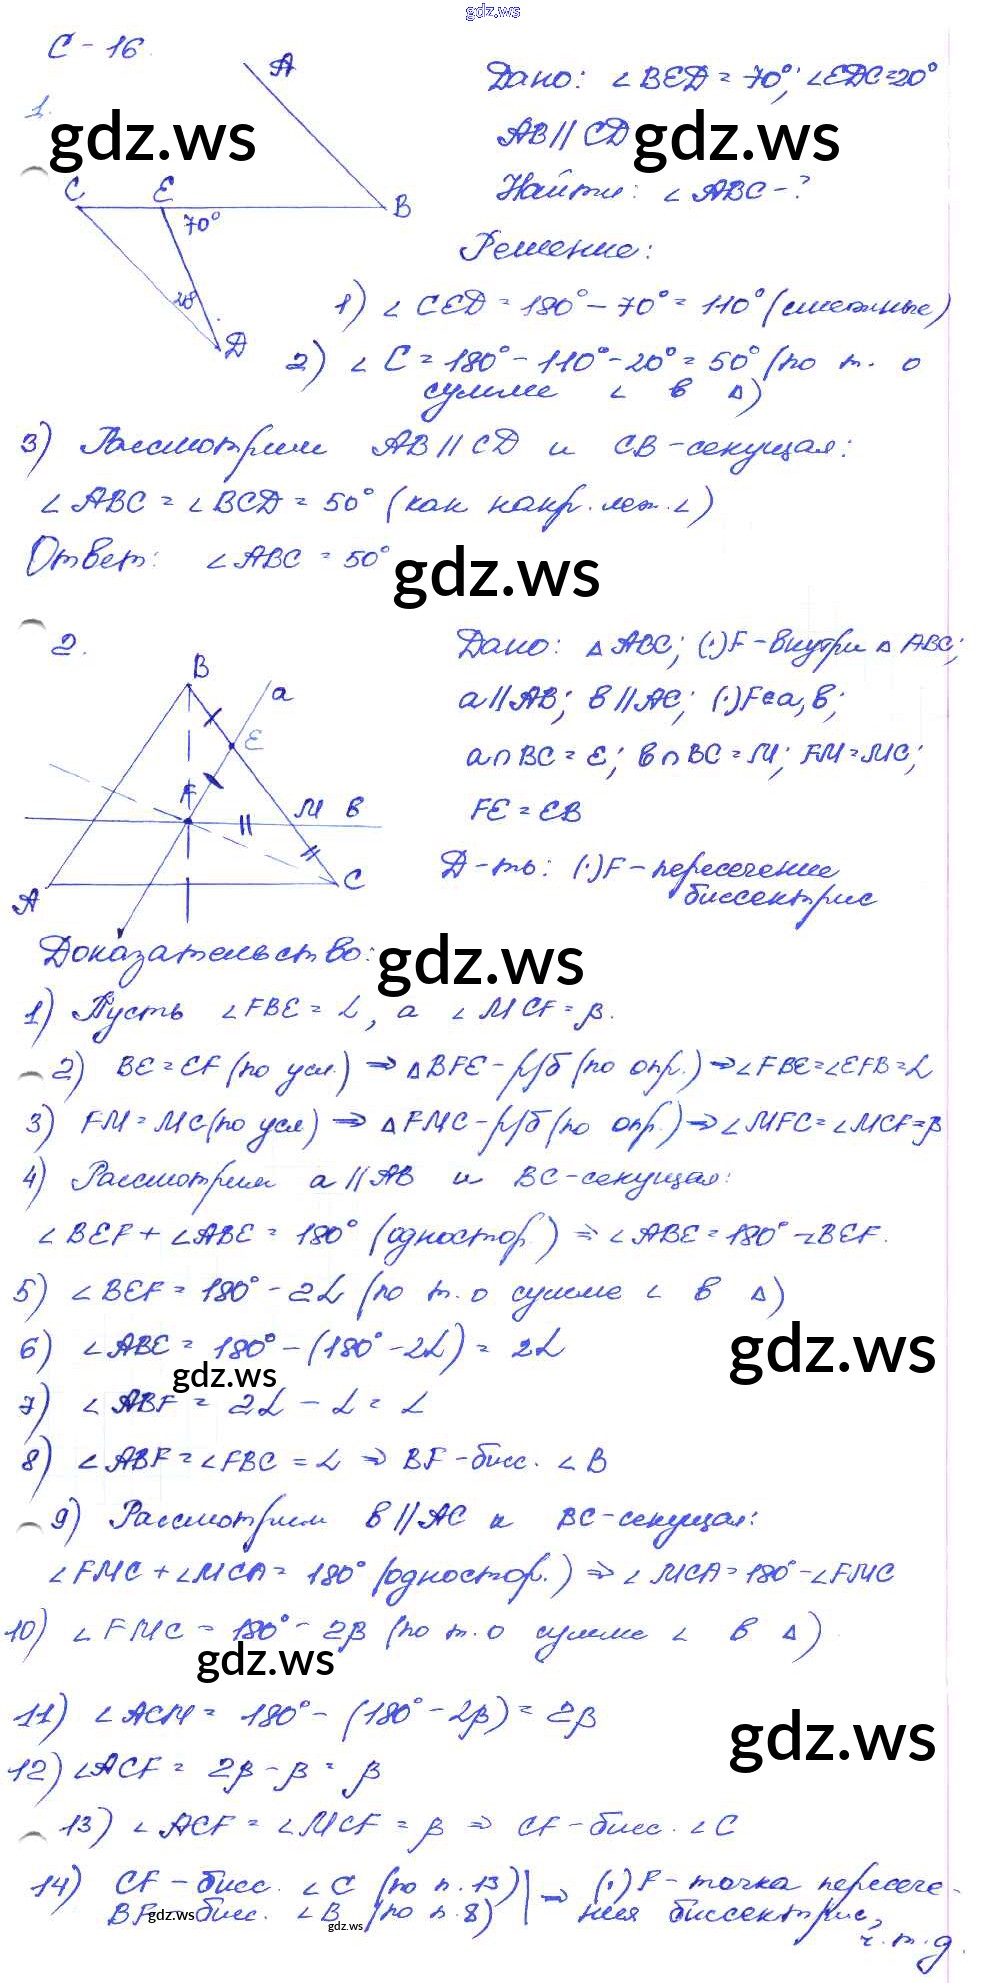 gdz.ws
С - 16.
1.
A
C E B
70°
20°
D
gdz.ws
Дано: ∠BED = 70°; ∠EDC=20°
AB || CD
gdz.ws
Найти: ∠ABC - ?
Решение:
1) ∠CED = 180° - 70° = 110° (смежные)
2) ∠C = 180° - 110° - 20° = 50° (по т. о
сумме ∠ в Δ)
3) Рассмотрим AB || CD и CB - секущая:
∠ABC = ∠BCD = 50° (как накр. леж. ∠)
Ответ: ∠ABC = 50°
gdz.ws
2.
B
a
E
F M в
A C
Дано: Δ ABC; (·)F - внутри Δ ABC;
a || AB; в || AC; (·)F∈a, в;
a ∩ BC = E; в ∩ BC = M; FM = MC;
FE = EB
Д-ть: (·)F - пересечение
биссектрис
Доказательство:
gdz.ws
1) Пусть ∠FBE = α, а ∠MCF = β.
2) BE = EF (по усл.) ⇒ ΔBFE - р/б (по опр.) ⇒ ∠FBE = ∠EFB = α
3) FM = MC (по усл) ⇒ ΔFMC - р/б (по опр.) ⇒ ∠MFC = ∠MCF = β
4) Рассмотрим a || AB и BC - секущая:
∠BEF + ∠ABE = 180° (одностор.) ⇒ ∠ABE = 180° - ∠BEF.
5) ∠BEF = 180° - 2α (по т. о сумме ∠ в Δ)
6) ∠ABE = 180° - (180° - 2α) = 2α
gdz.ws
gdz.ws
7) ∠ABF = 2α - α = α
8) ∠ABF = ∠FBC = α ⇒ BF - бисс. ∠B
9) Рассмотрим в || AC и BC - секущая:
∠FMC + ∠MCA = 180° (одностор.) ⇒ ∠MCA = 180° - ∠FMC
10) ∠FMC = 180° - 2β (по т. о сумме ∠ в Δ)
gdz.ws
11) ∠ACM = 180° - (180° - 2β) = 2β
gdz.ws
12) ∠ACF = 2β - β = β
13) ∠ACF = ∠MCF = β ⇒ CF - бисс. ∠C
14) CF - бисс. ∠C (по п. 13) | ⇒ (·) F - точка пересече-
BF - бисс. ∠B (по п. 8) | ния биссектрис,
gdz.ws
gdz.ws
ч. т. д.